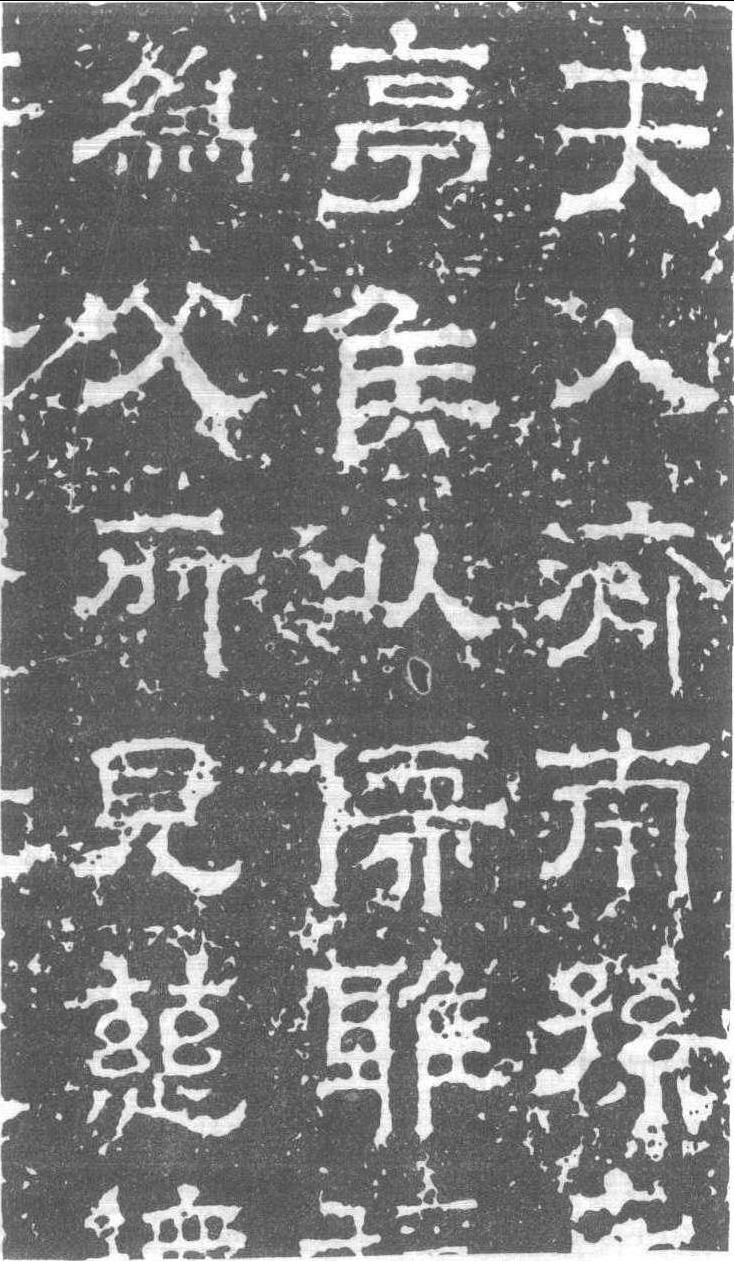 夫人濟南孫
亭侯以儒雅
爲父所見慈